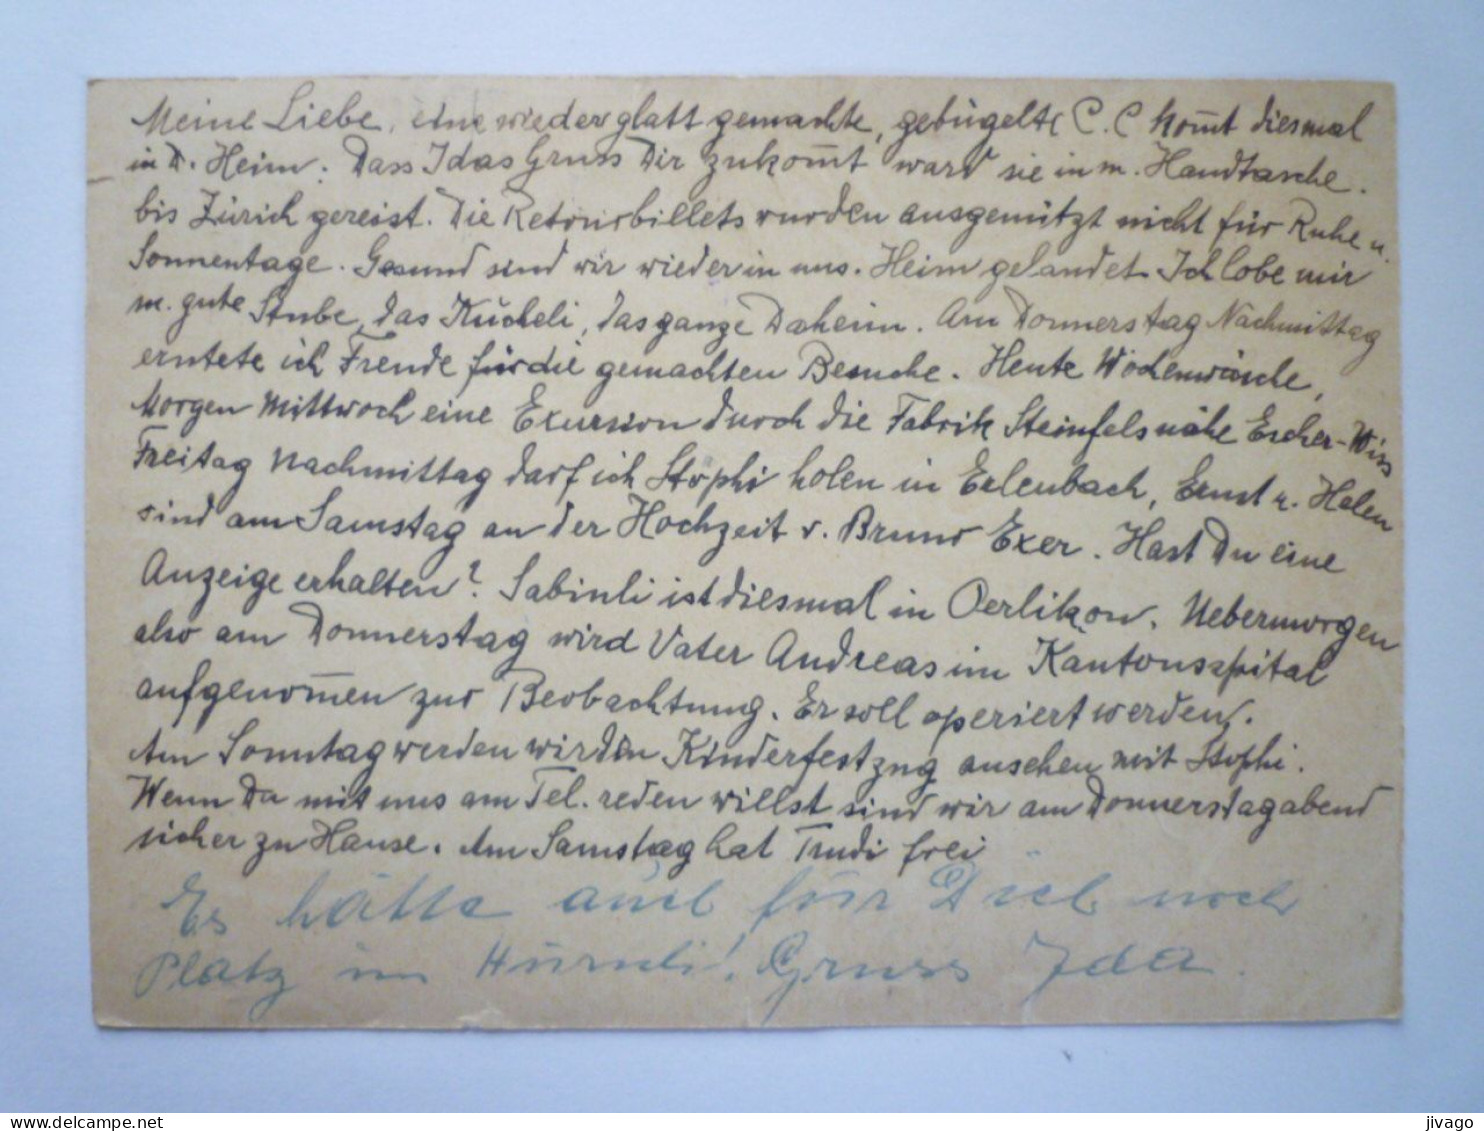 Meine Liebe, eine wieder glatt gemachte, gebügelte C.C kom̄t diesmal
in D. Heim: Dass Idas Gruss Dir zukom̄t ward sie in m. Handtasche.
bis Zürich gereist. Die Retourbillets wurden ausgenützt nicht für Ruhe u.
Sonnentage. Gesund sind wir wieder in uns. Heim gelandet. Ich lobe mir
m. gute Stube, das Kücheli, das ganze Daheim. Am Donnerstag Nachmittag
erntete ich Freude für die gemachten Besuche. Heute Wochenwäsche,
Morgen Mittwoch eine Exursion durch die Fabrik Steinfels nähe Escher-Wiss
Freitag Nachmittag darf ich Stophi holen in Erlenbach, Ernst u. Helen
sind am Samstag an der Hochzeit v. Bruno Exer. Hast Du eine
Anzeige erhalten? Sabinli ist diesmal in Oerlikon. Uebermorgen
also am Donnerstag wird Vater Andreas im Kantonsspital
aufgenom̄en zur Beobachtung. Er soll operiert werden.
Am Sonntag werden wir den Kinderfestzug ansehen mit Stophi.
Wenn Du mit uns am Tel. reden willst sind wir am Donnerstagabend
sicher zu Hause. Am Samstag hat Trudi frei
Es hätte auch für Dich noch
Platz im Hürnli! Gruss Ida.
jivago